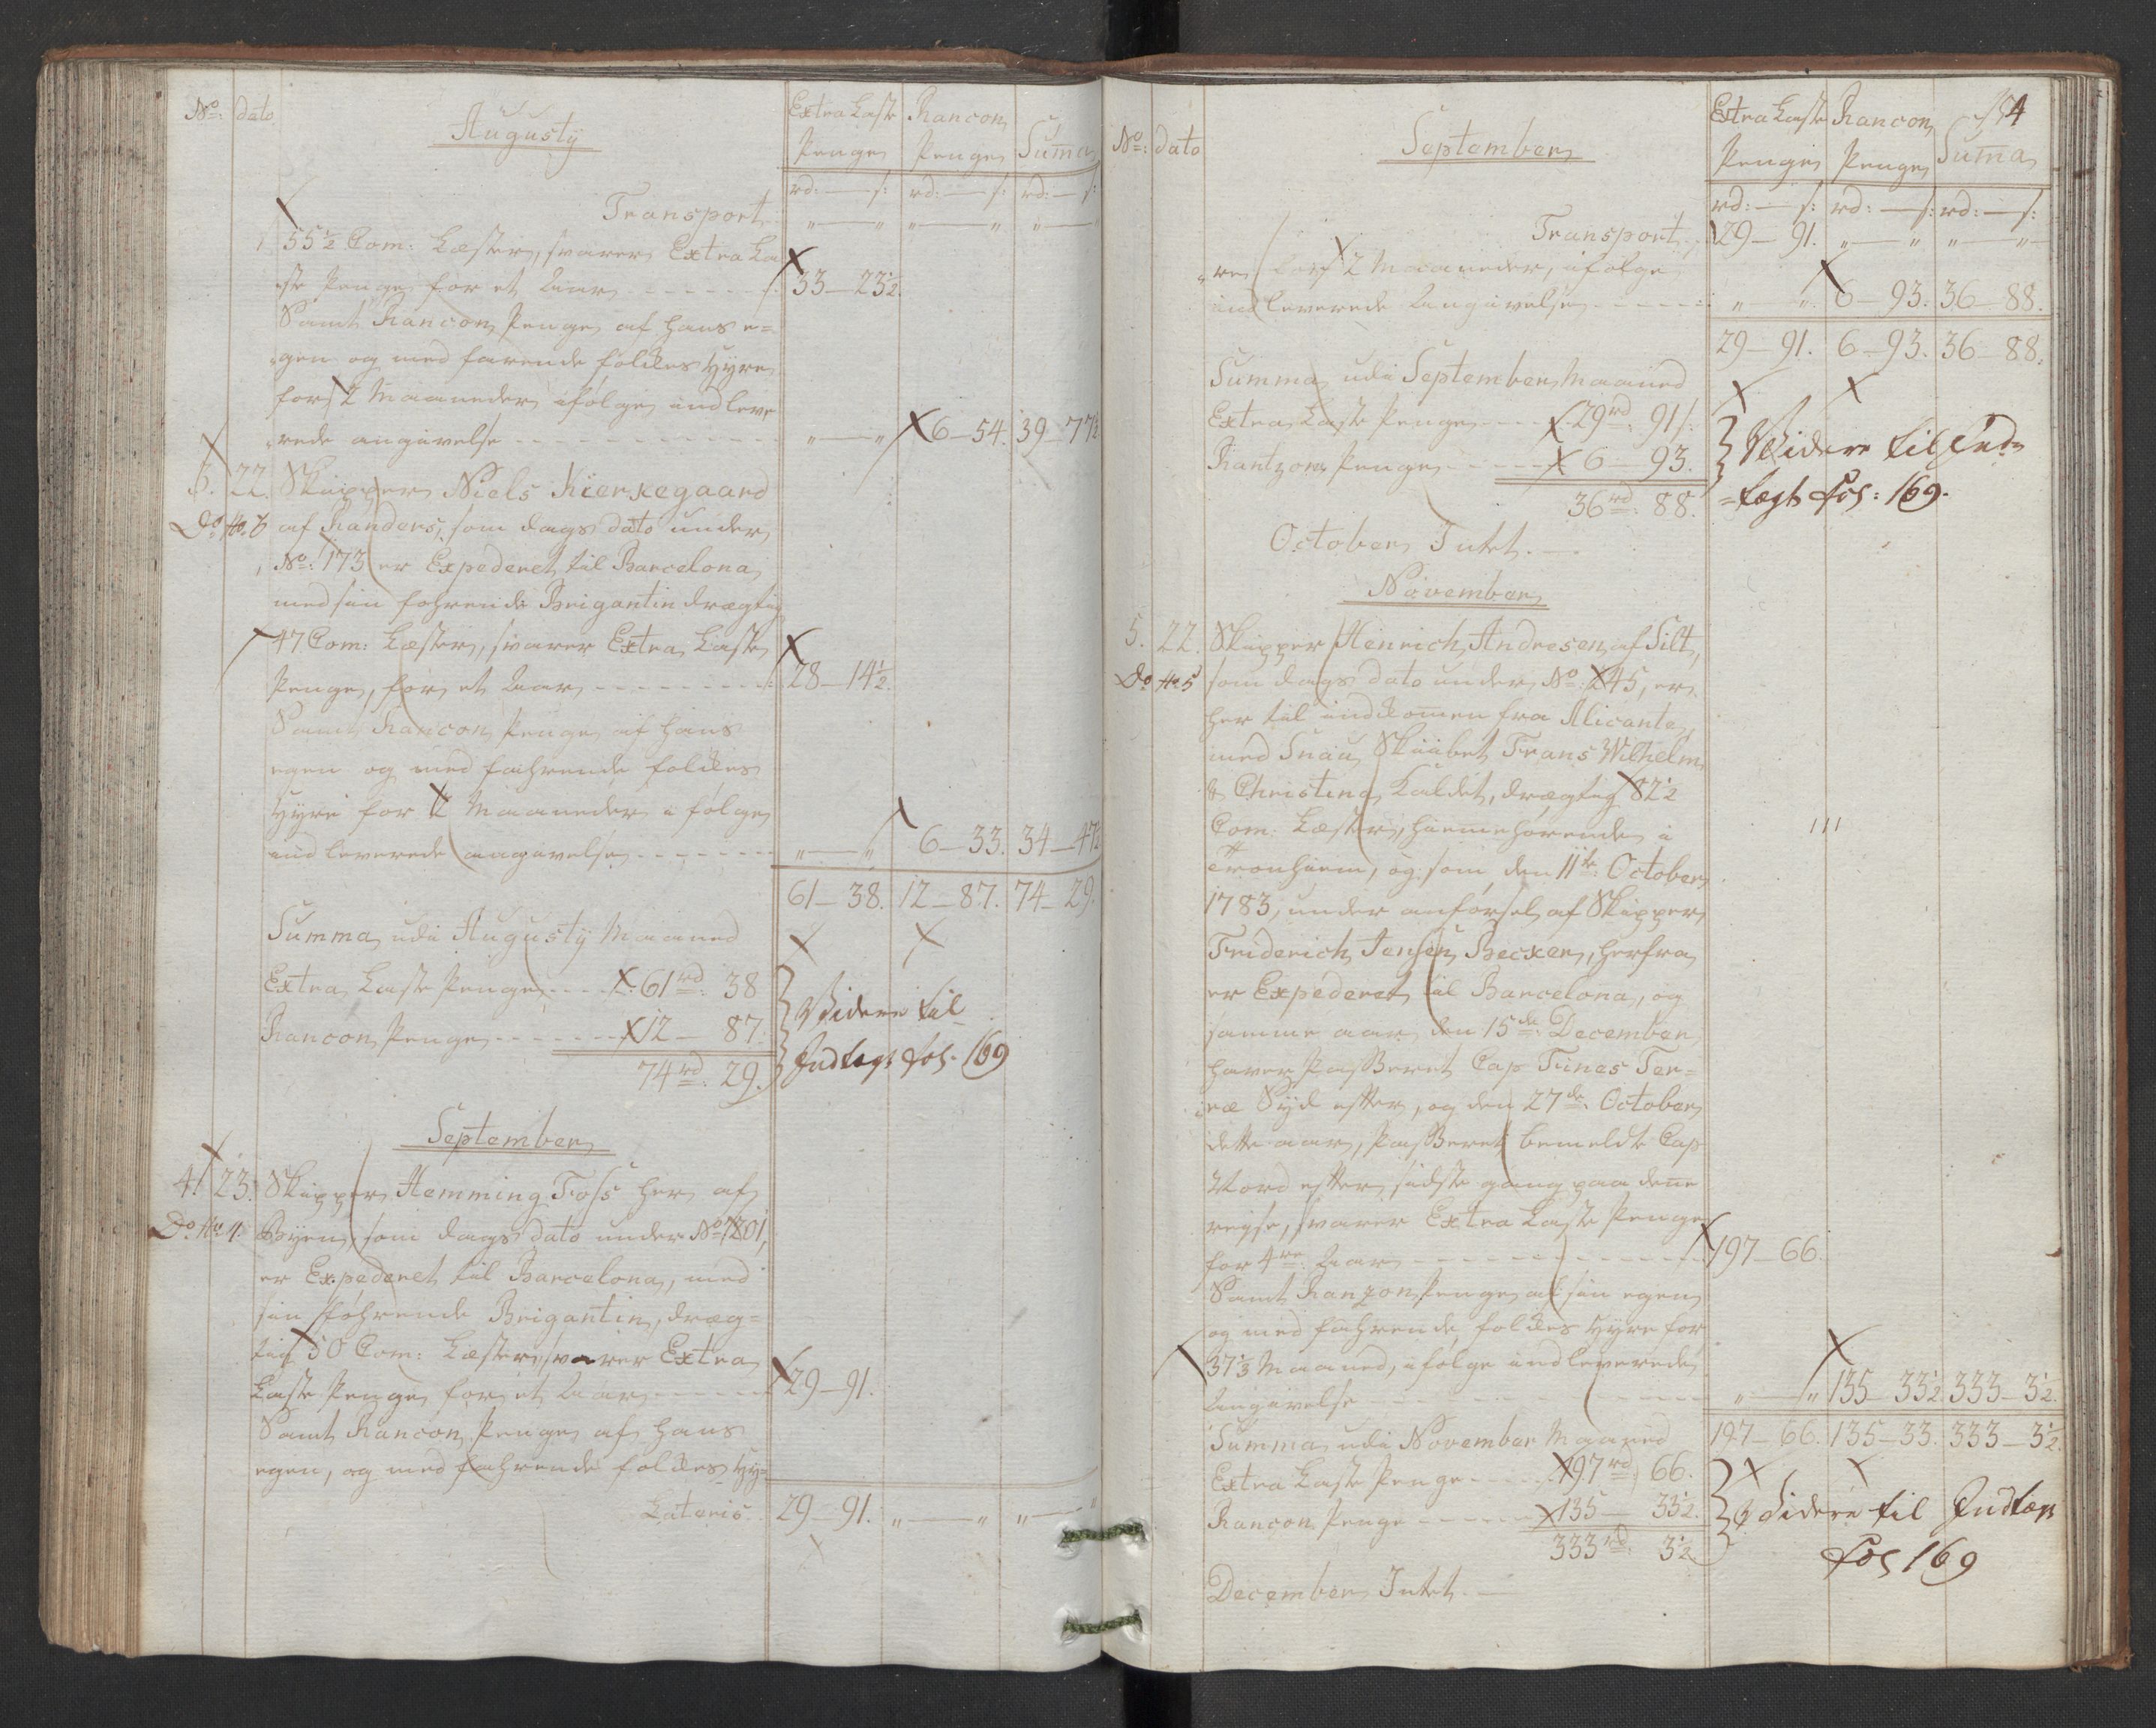 No: dato
Augusty
Extra Laste Penge
Rancon Penge
Suma
rd: — s: rd: — s: rd: — s:
Transport „ — „ „ — „ „ — „
55½ Com: Læster, svarer Extra La
ste Penge for et Aar - - - - - - 33 — 23½.
Samt Rancon Penge af hans e=
gen og med farende folkes Hyre
for 2 Maaneder ifølge indleve
rede angivelse - - - - - - „ — „ 6 — 54. 39 — 77½
3. 22. Skipper Niels Kierkegaard
Do No. 3 af Randers, som dags dato under
No: 173 er Expederet til Barcelona,
med sin fohrende Brigantin drægtig
47 Com: Læster, svarer Extra Laste
Penge, for et Aar - - - - - - 28 — 14½.
Samt Rancon Penge af hans
egen og med fahrende folkes
Hyre for 2 Maaneder i følge
indleverede angivelse - - - - - „ — „ 6 — 33. 34 — 47½
61 — 38. 12 — 87. 74 — 29.
Summa udi Augusty Maaned
Extra Laste Penge - - - - 61 rd: 38
Rancon Penge - - - - - - 12 — 87.
74 rd: 29.
Videre til
Indtægt fol. 169
September
4. 23. Skipper Hemming Foss her af
Do No 4. Byen, som dags dato under No: 201,
er Expederet til Barcelona, med
sin føhrende Brigantin, dræg=
tig 50 Com: Læster, svarer Extra
Laste Penge for et Aar - - - - - 29 — 91.
Samt Rancon Penge af hans
egen, og med fahrende folkes Hy=
Lateris. 29 — 91. „ — „ „ — „
No: dato
September
Extra Laste Penge
Rancon Penge
Suma
174
rd: — s: rd: — s: rd: — s:
Transport 29 — 91. „ — „ „ — „
re for 2 Maaneder, ifølge
indleverede Angivelse - - - - - „ — „ 6 — 93. 36 — 88.
29 — 91. 6 — 93. 36 — 88.
Summa udi September Maaned
Extra Laste Penge - - - - 29 rd: 91 s:
Rantzon Penge - - - - - - 6 — 93.
36 rd: 88.
Videre til Ind=
=tægt fol: 169.
October Intet. —
November
5. 22. Skipper Hinrich Andresen af Silt,
Do No 5 som dags dato under No: 245, er
her til indkomen fra Alicante,
med Snau Skiibet Frans Wilhelm
& Christina Kaldet, drægtig 82½
Com: Læster, hiemehørende i
Tronhiem, og som den 11te October
1783, under anførsel af Skipper
Friderich Jensen Becker, herfra
er Expederet til Barcelona, og
samme aar den 15de December
haver Passeret Cap Fines Ter=
ræ Syd efter, og den 27de October
dette aar, Passeret bemeldte Cap
Nord efter, sidste gang paa denne
reyse, svarer Extra Laste Penge
for 4re Aar - - - - - - 197 — 66.
Samt Ranzon Penge af sin egen
og med fahrende folkes Hyre for
37⅓ Maaned, ifølge indleverede
Angivelse - - - - - - „ — „ 135 — 33½ 333 — 3½.
197 — 66. 135 — 33. 333 — 3½.
Summa udi November Maaned
Extra Laste Penge - - - - 197 rd: 66.
Rancon Penge - - - - - - 135 — 33½.
333 rd: 3½.
Videre til Indtægt
fol 169
December Intet. —